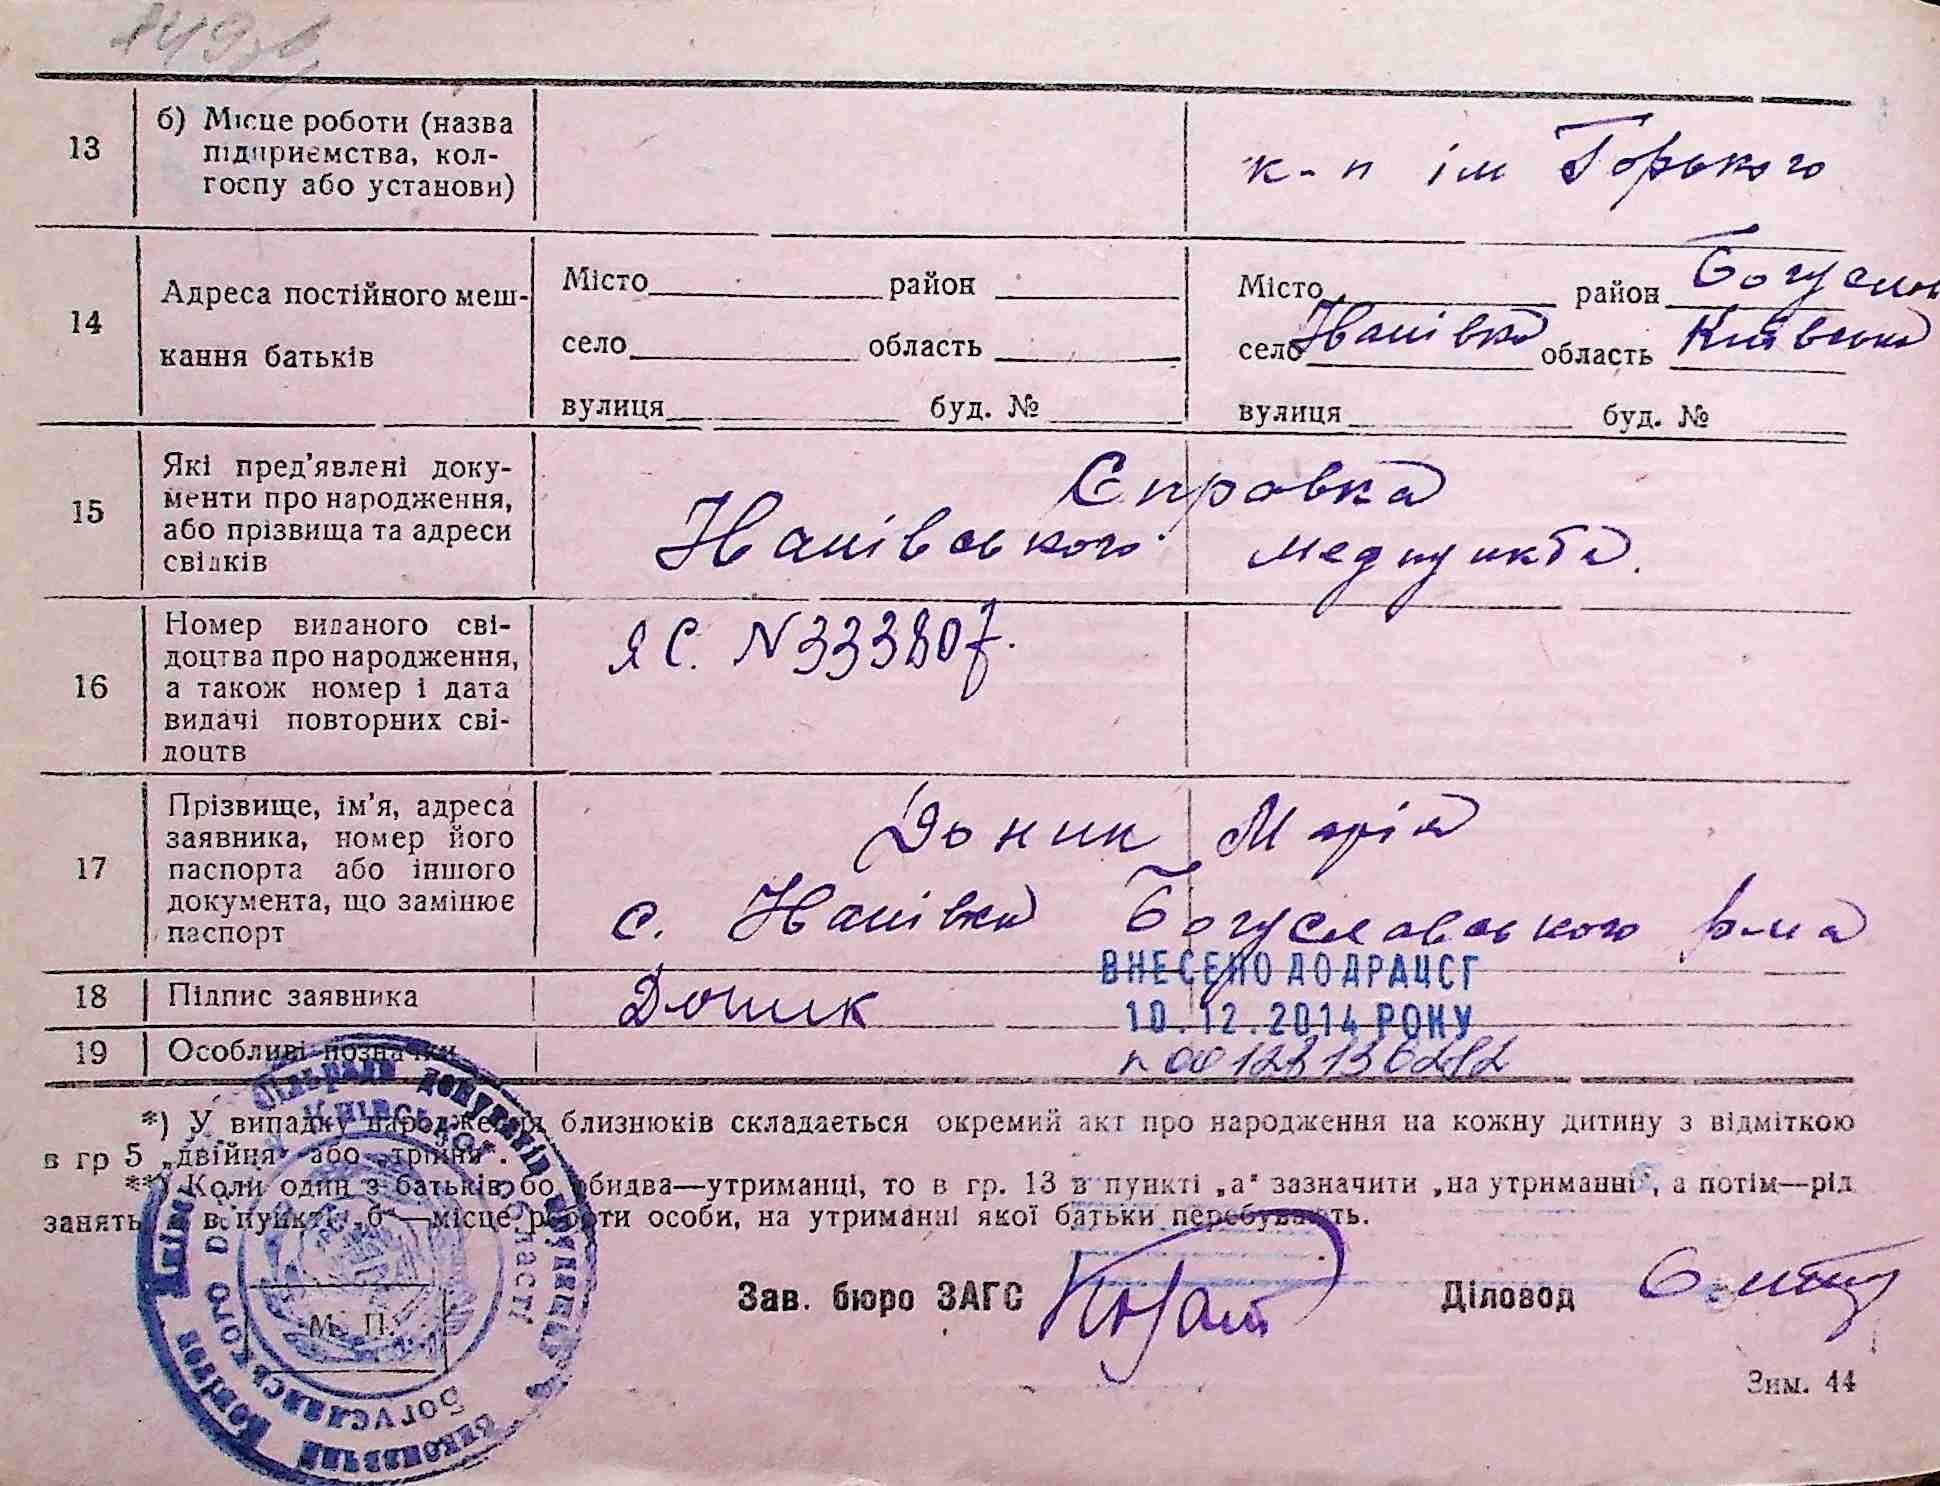 13 б) Місце роботи (назва
підприємства, кол-
госпу або установи)
к-п ім Горького
14 Адреса постійного меш-
кання батьків
Місто район
село область
вулиця буд. №
Місто район Богуслав
село область Київська
вулиця буд. №
15 Які пред'явлені доку-
менти про народження,
або прізвища та адреси
свідків
Справка
медпункта.
16 Номер виданого сві-
доцтва про народження,
а також номер і дата
видачі повторних сві-
доцтв
ЯС. N 333807.
17 Прізвище, ім'я, адреса
заявника, номер його
паспорта або іншого
документа, що замінює
паспорт
Доник Марія
с. Богуславського р-на
ВНЕСЕНО ДО ДРАЦСГ
10.12.2014 РОКУ
18 Підпис заявника
Доник
19 Особливі позначки
*) У випадку народження близнюків складається окремий акт про народження на кожну дитину з відміткою
в гр 5 „двійня" або „трійня".
**) Коли один з батьків або обидва—утриманці, то в гр. 13 в пункті „а" зазначити „на утриманні", а потім—рід
занять, в пункті „б"—місце роботи особи, на утриманні якої батьки перебувають.
Зав. бюро ЗАГС
Діловод
М. П.
Зим. 44